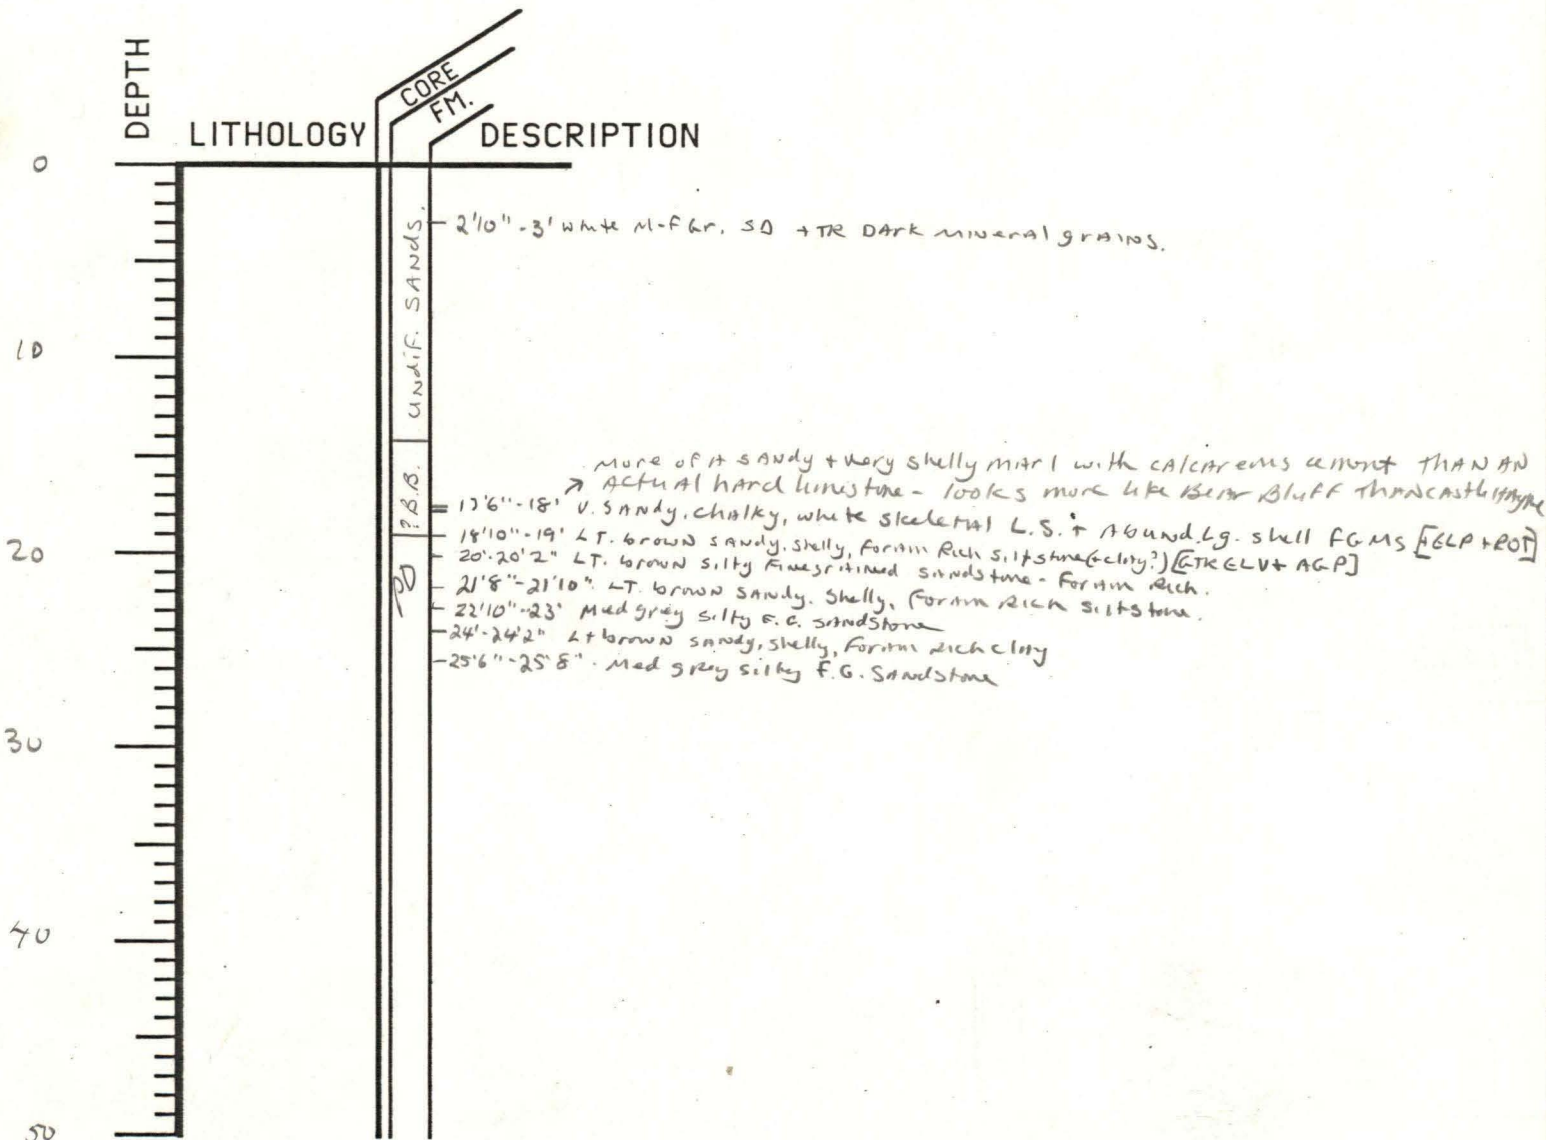 DEPTH
LITHOLOGY
CORE
FM.
DESCRIPTION
0
10
20
30
40
50
UNDIF. SANDS.
?B.B.
2'10"-3' White M-F Gr. SD + TR DARK MINERAL GRAINS.
More of A SANDY + very shelly marl with CALCAREOUS cement THAN AN
→ ACTUAL hard limestone - looks more like Bear Bluff THAN Castle Hayne
17'6"-18' V. SANDY, chalky, white skeletal L.S. + Abund. Lg. shell FGMS
18'10"-19' LT. brown SANDY, shelly, foram Rich siltstone (+ clay?)
20'-20'2" LT. brown silty Finegrained sandstone - Foram Rich.
21'8"-21'10" LT. brown SANDY. Shelly, Foram Rich siltstone.
22'10"-23' Med grey silty F.G. sandstone
24'-24'2" Lt brown sandy, shelly, Foram Rich clay
25'6"-25'8" Med grey silty F.G. Sandstone